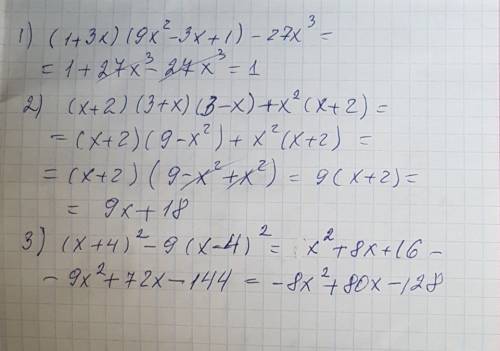 1) (1+3x)(9x²-3x+1)-27x³=
=1+27x³-27x³=1
2) (x+2)(3+x)(3-x)+x²(x+2)=
=(x+2)(9-x²)+x²(x+2)=
=(x+2)(9-x²+x²)=9(x+2)=
=9x+18
3) (x+4)²-9(x-4)²=x²+8x+16-
-9x²+72x-144=-8x²+80x-128